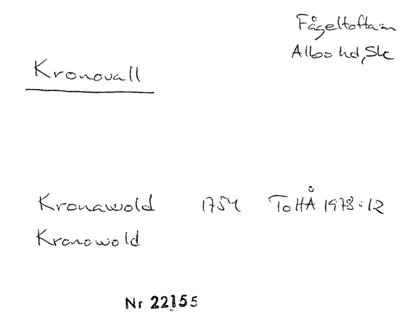 Fågeltofta sn
Albo hd, Sk
Kronovall
Kronawold 1754 ToHÅ 1978:12
Kronowold
Nr 22155